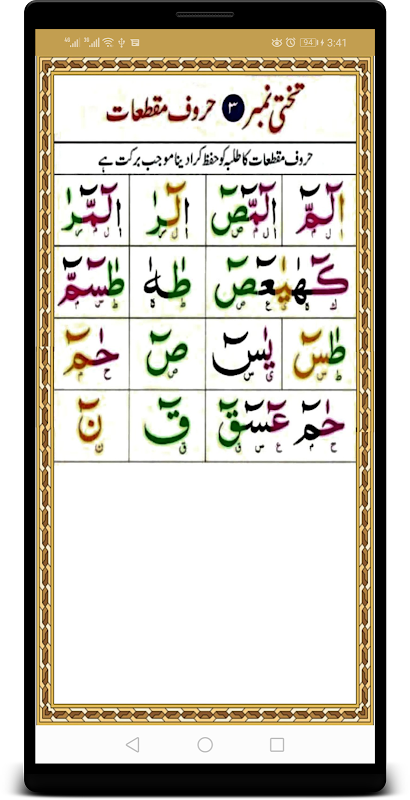 4G 3G 94 3:41
تختی نمبر ۳ حروف مقطعات
حروف مقطعات کا طلبہ کو حفظ کرا دینا موجب برکت ہے
الٓمّٓ الٓمّٓصٓ الٓرٰ الٓمّٓرٰ
ا ل م ا ل م ص ا ل ر ا ل م ر
كٓهٰيٰعٓصٓ طٰهٰ طٰسٓمّٓ
ك ه ي ع ص ط ه ط س م
طٰسٓ يٰسٓ صٓ حٰمٓ
ط س ي س ص ح م
حٰمٓ عٓسٓقٓ قٓ نٓ
ح م ع س ق ق ن